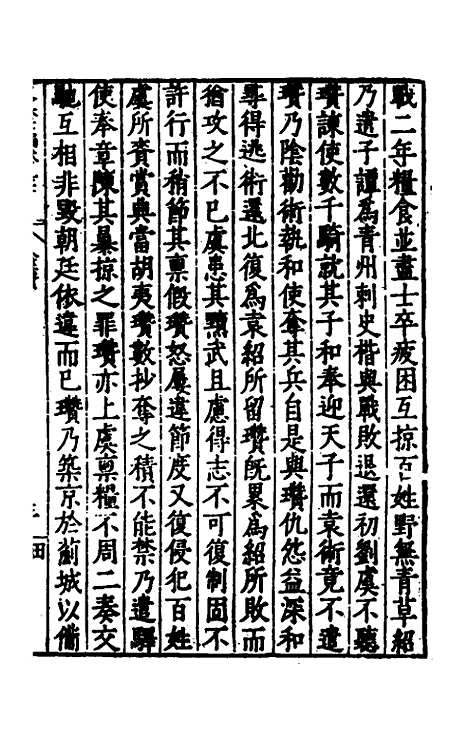 戰二年糧食並盡士卒疲困互掠百姓野無青草紹
乃遣子譚爲青州刺史楷與戰敗退還初劉虞不聽
瓚諫使數千騎就其子和奉迎天子而袁術竟不遣
瓚乃陰勸術執和使奪其兵自是與瓚仇怨益深和
尋得逃術還北復爲袁紹所留瓚旣累爲紹所敗而
猶攻之不已虞患其黷武且慮得志不可復制固不
許行而稍節其稟假瓚怒屢違節度又復侵犯百姓
虞所賚賞典當胡夷瓚數抄奪之積不能禁乃遣驛
使奉章陳其暴掠之罪瓚亦上虞稟糧不周二奏交
馳互相非毀朝廷依違而已瓚乃築京於薊城以備